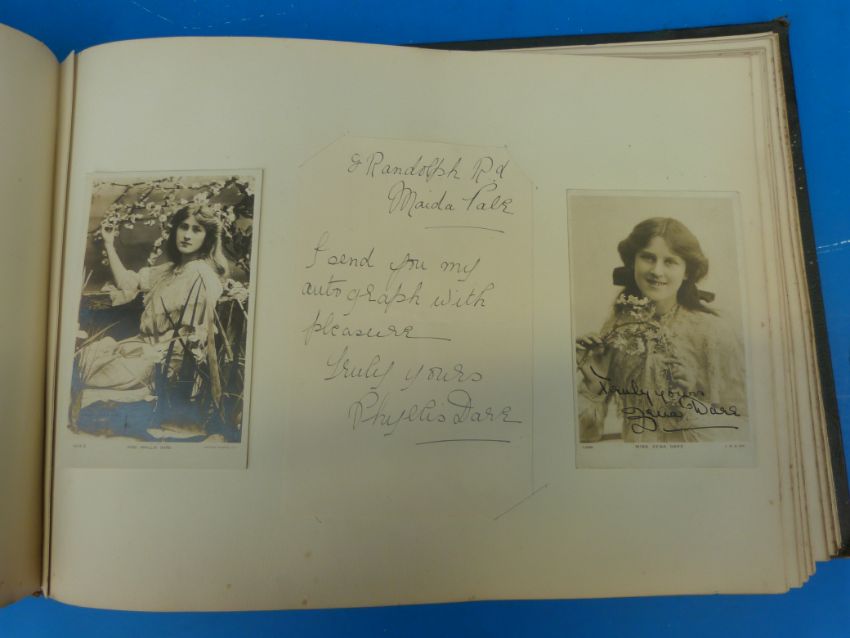 Randolph Rd
Maida Vale
I send you my
autograph with
pleasure
Truly yours
Phyllis Dare
MISS PHYLLIS DARE
Truly yours
Zena Dare
MISS ZENA DARE